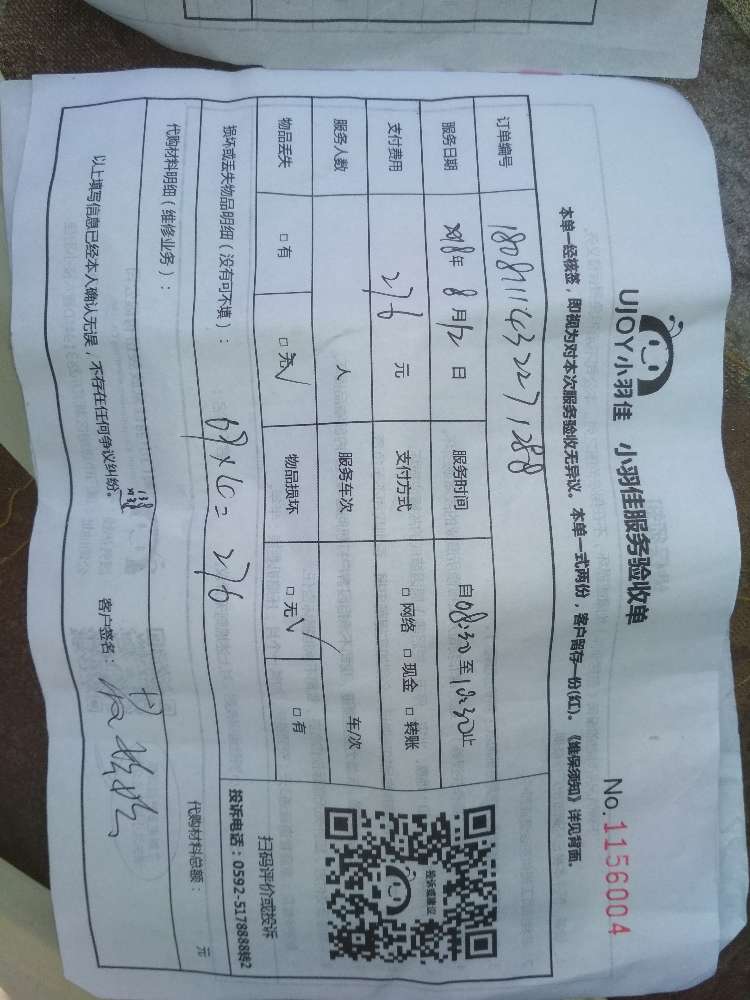 UJOY小羽佳 小羽佳服务验收单
No.1156004
本单一经核签，即视为对本次服务验收无异议。本单一式两份，客户留存一份(红)。《维保须知》详见背面。
订单编号 180811143227288
服务日期 2018年 8月12日 服务时间 自08:30至10:30止
支付费用 276 元 支付方式 □网络 □现金 □转账
服务人数 人 服务车次 车/次
物品丢失 □有 □无√ 物品损坏 □无√ □有
损坏或丢失物品明细（没有可不填）：
69×4=276
投诉或建议
扫码评价或投诉
投诉电话：0592-5178888转2
代购材料明细（维修业务）： 代购材料总额： 元
以上填写信息已经本人确认无误，不存在任何争议纠纷。 客户签名：